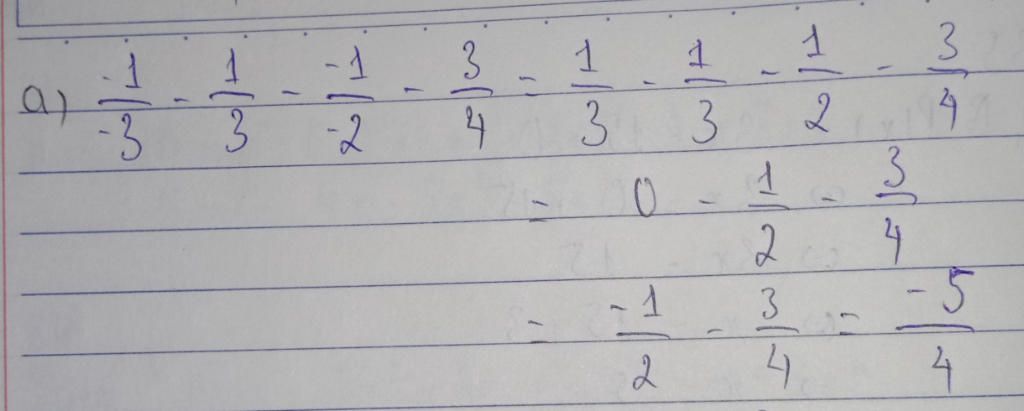 a) -1/-3 - 1/3 - -1/-2 - 3/4 = 1/3 - 1/3 - 1/2 - 3/4
= 0 - 1/2 - 3/4
= -1/2 - 3/4 = -5/4